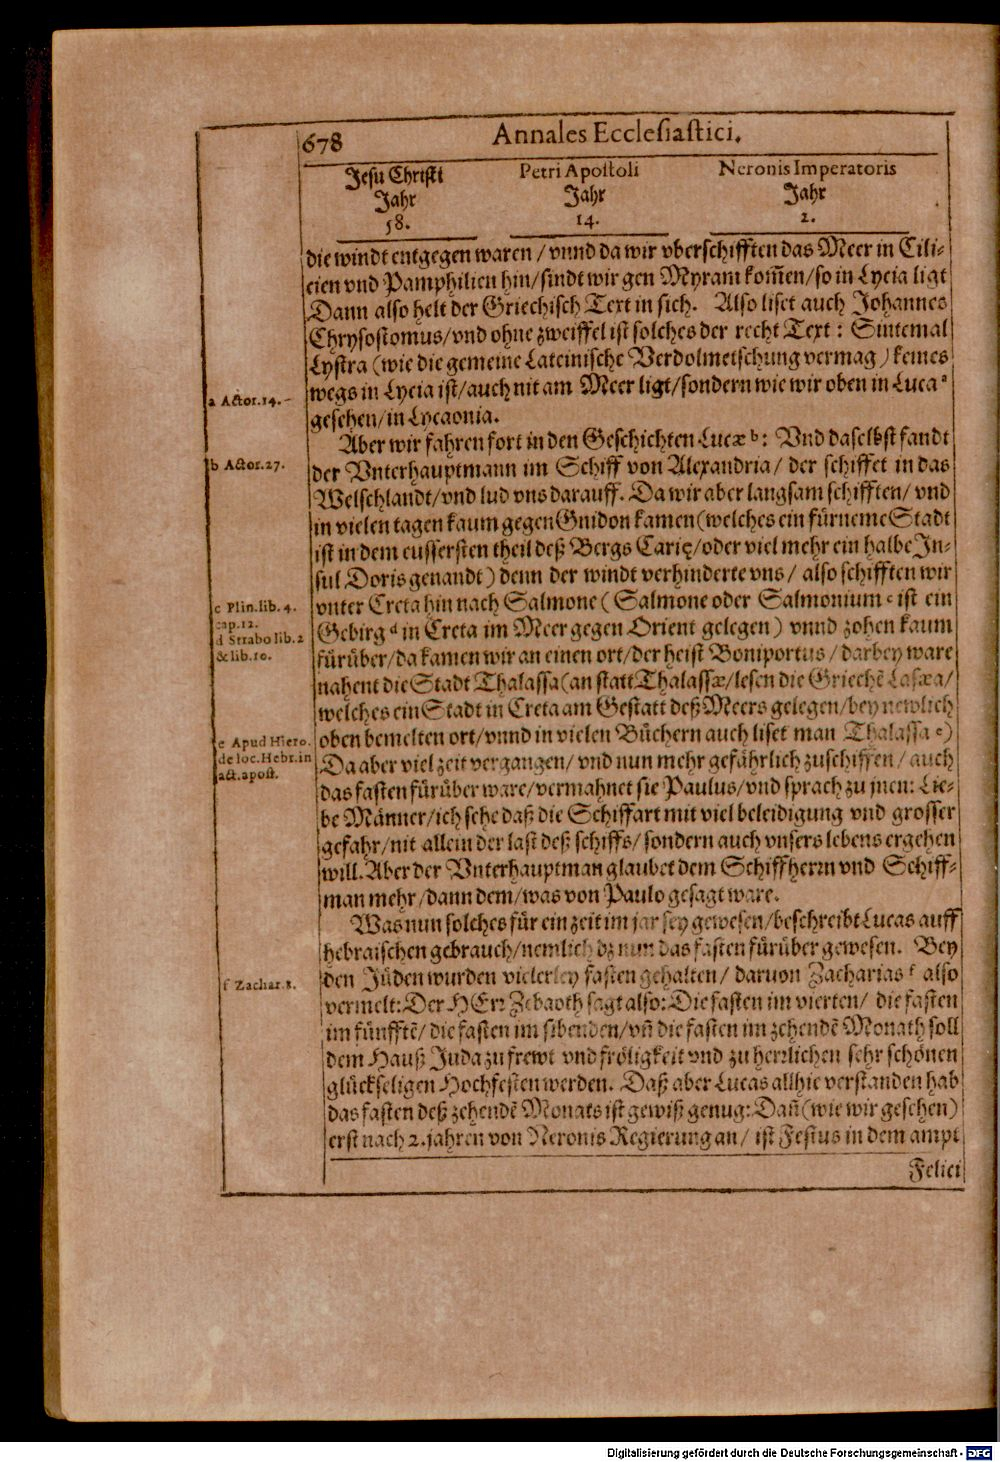 678 Annales Ecclesiastici.
Jesu Christi Petri Apostoli Neronis Imperatoris
Jahr Jahr Jahr
58. 14. 2.
die windt entgegen waren / vnnd da wir vberschifften das Meer in Cili-
cien vnd Pamphilien hin/sindt wir gen Myram kom̃en/so in Lycia ligt
Dann also helt der Griechisch Text in sich. Also liset auch Johannes
Chrysostomus/vnd ohne zweiffel ist solches der recht Text: Sintemal
Lystra (wie die gemeine Lateinische Verdolmetschung vermag) keines
wegs in Lycia ist/auch nit am Meer ligt/sondern wie wir oben in Luca a
a Actor.14.
gesehen/in Lycaonia.
Aber wir fahren fort in den Geschichten Lucæ b: Vnd daselbst fandt
b Actor.27.
der Vnterhauptmann im Schiff von Alexandria/ der schiffet in das
Welschlandt/vnd lud vns darauff. Da wir aber langsam schifften/ vnd
in vielen tagen kaum gegen Gnidon kamen (welches ein fürneme Stadt
ist in dem eussersten theil deß Bergs Carię/oder viel mehr ein halbe In-
sul Doris genandt) denn der windt verhinderte vns/ also schifften wir
vnter Creta hin nach Salmone (Salmone oder Salmonium c ist ein
c Plin.lib. 4.
cap.12.
Gebirg d in Creta im Meer gegen Orient gelegen) vnnd zohen kaum
d Strabo lib.2
& lib.10.
fürüber/da kamen wir an einen ort/der heist Boniportus/ darbey ware
nahent die Stadt Thalassa (an statt Thalassæ/lesen die Griechẽ Lasæa/
welches ein Stadt in Creta am Gestatt deß Meers gelegen/bey newlich
oben bemelten ort/vnnd in vielen Büchern auch liset man Thalassa e)
e Apud Hiero.
de loc. Hebr.in
act.apost.
Da aber viel zeit vergangen/ vnd nun mehr gefährlich zuschiffen/ auch
das fasten fürüber ware/vermahnet sie Paulus/vnd sprach zu jnen: Lie-
be Männer/ich sehe daß die Schiffart mit viel beleidigung vnd grosser
gefahr/nit allein der last deß schiffs/sondern auch vnsers lebens ergehen
will. Aber der Vnterhauptman glaubet dem Schiffherrn vnd Schiff-
man mehr/dann dem/was von Paulo gesagt ware.
Was nun solches für ein zeit im jar sey gewesen/beschreibt Lucas auff
hebraischen gebrauch/nemlich dz nun das fasten fürüber gewesen. Bey
den Jüden wurden vielerley fasten gehalten/ daruon Zacharias f also
f Zachar.8.
vermelt: Der HErr Zebaoth sagt also: Die fasten im vierten/ die fasten
im fünfftẽ/ die fasten im sibenden/vñ die fasten im zehendẽ Monath soll
dem Hauß Juda zu frewt vnd fröligkeit vnd zu herrlichen sehr schönen
glückseligen Hochfesten werden. Daß aber Lucas allhie verstanden hab
das fasten deß zehendẽ Monats ist gewiß genug: Dañ (wie wir gesehen)
erst nach 2. jahren von Neronis Regierung an/ ist Festus in dem ampt
Felici
Digitalisierung gefördert durch die Deutsche Forschungsgemeinschaft - DFG